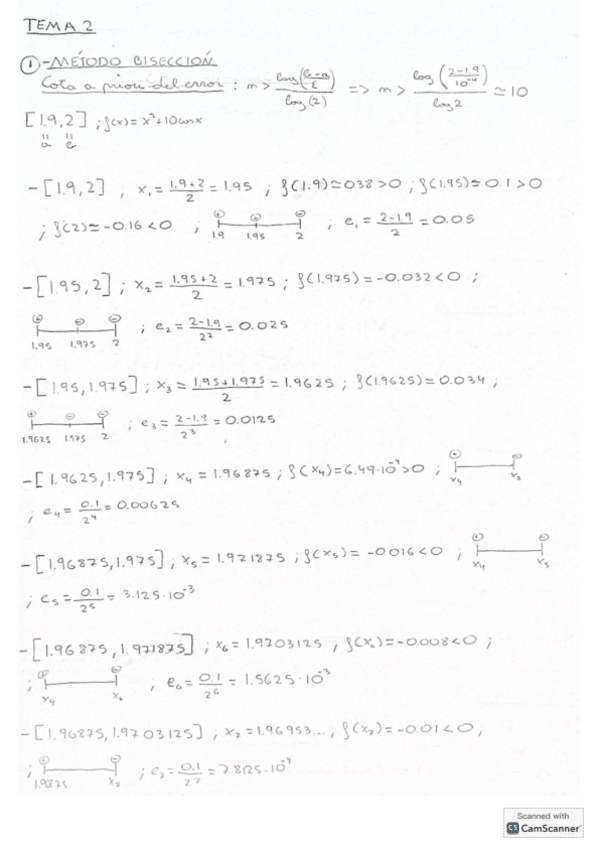 TEMA 2
① - MÉTODO BISECCIÓN
Cota a priori del error : m > log((b-a)/ε) / log(2) => m > log((2-1.9)/10⁻⁴) / log 2 ≃ 10
[1.9, 2] ; f(x) = x² + 10 cos x
a b
- [1.9, 2] , x₁ = (1.9+2)/2 = 1.95 ; f(1.9) ≃ 038 > 0 ; f(1.95) ≃ 0.1 > 0
; f(2) ≃ -0.16 < 0 ; ⊕ ⊕ ⊖ ; e₁ = (2-1.9)/2 = 0.05
1.9 1.95 2
- [1.95, 2] ; x₂ = (1.95+2)/2 = 1.975 ; f(1.975) = -0.032 < 0 ;
⊕ ⊖ ⊖ ; e₂ = (2-1.9)/2² = 0.025
1.95 1.975 2
- [1.95, 1.975] ; x₃ = (1.95+1.975)/2 = 1.9625 ; f(1.9625) = 0.034 ;
⊕ ⊖ ⊖ ; e₃ = (2-1.9)/2³ = 0.0125
1.9625 1.975 2
- [1.9625, 1.975] ; x₄ = 1.96875 ; f(x₄) = 6.49·10⁻⁴ > 0 ; ⊕ ⊖
x₄ x₂
; e₄ = 0.1/2⁴ = 0.00625
- [1.96875, 1.975] ; x₅ = 1.971875 ; f(x₅) = -0.016 < 0 ; ⊕ ⊖
x₄ x₅
; e₅ = 0.1/2⁵ = 3.125·10⁻³
- [1.96875, 1.971875] ; x₆ = 1.9703125 ; f(x₆) = -0.008 < 0 ;
; ⊕ ⊖ , e₆ = 0.1/2⁶ = 1.5625·10⁻³
x₄ x₆
- [1.96875, 1.9703125] ; x₇ = 1.96953... , f(x₇) = -0.01 < 0 ;
; ⊕ ⊖ ; e₇ = 0.1/2⁷ = 7.8125·10⁻⁴
1.96875 x₇
Scanned with
CS CamScanner